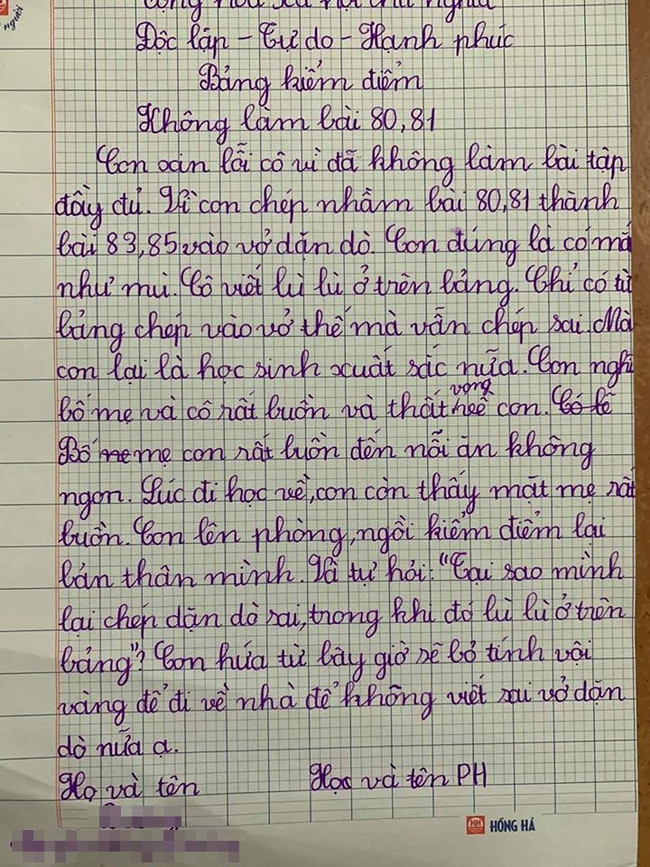 Cộng hòa xã hội chủ nghĩa
Độc lập - Tự do - Hạnh phúc
Bảng kiểm điểm
Không làm bài 80,81
Con xin lỗi cô vì đã không làm bài tập
đầy đủ. Vì con chép nhầm bài 80,81 thành
bài 83,85 vào vở dặn dò. Con đúng là có mắ
như mù. Cô viết lù lù ở trên bảng. Chỉ có từ
bảng chép vào vở thế mà vẫn chép sai. Mà
con lại là học sinh xuất sắc nữa. Con nghĩ
bố mẹ và cô rất buồn và thất vọng về con. Có lẽ
Bố me mẹ con rất buồn đến nỗi ăn không
ngon. Lúc đi học về, con còn thấy mặt mẹ rất
buồn. Con lên phòng, ngồi kiểm điểm lại
bản thân mình. Và tự hỏi: "Tại sao mình
lại chép dặn dò sai, trong khi đó lù lù ở trên
bảng"? Con hứa từ bây giờ sẽ bỏ tính vội
vàng để đi về nhà để không viết sai vở dặn
dò nữa ạ.
Họ và tên Học và tên PH
HH HỒNG HÀ